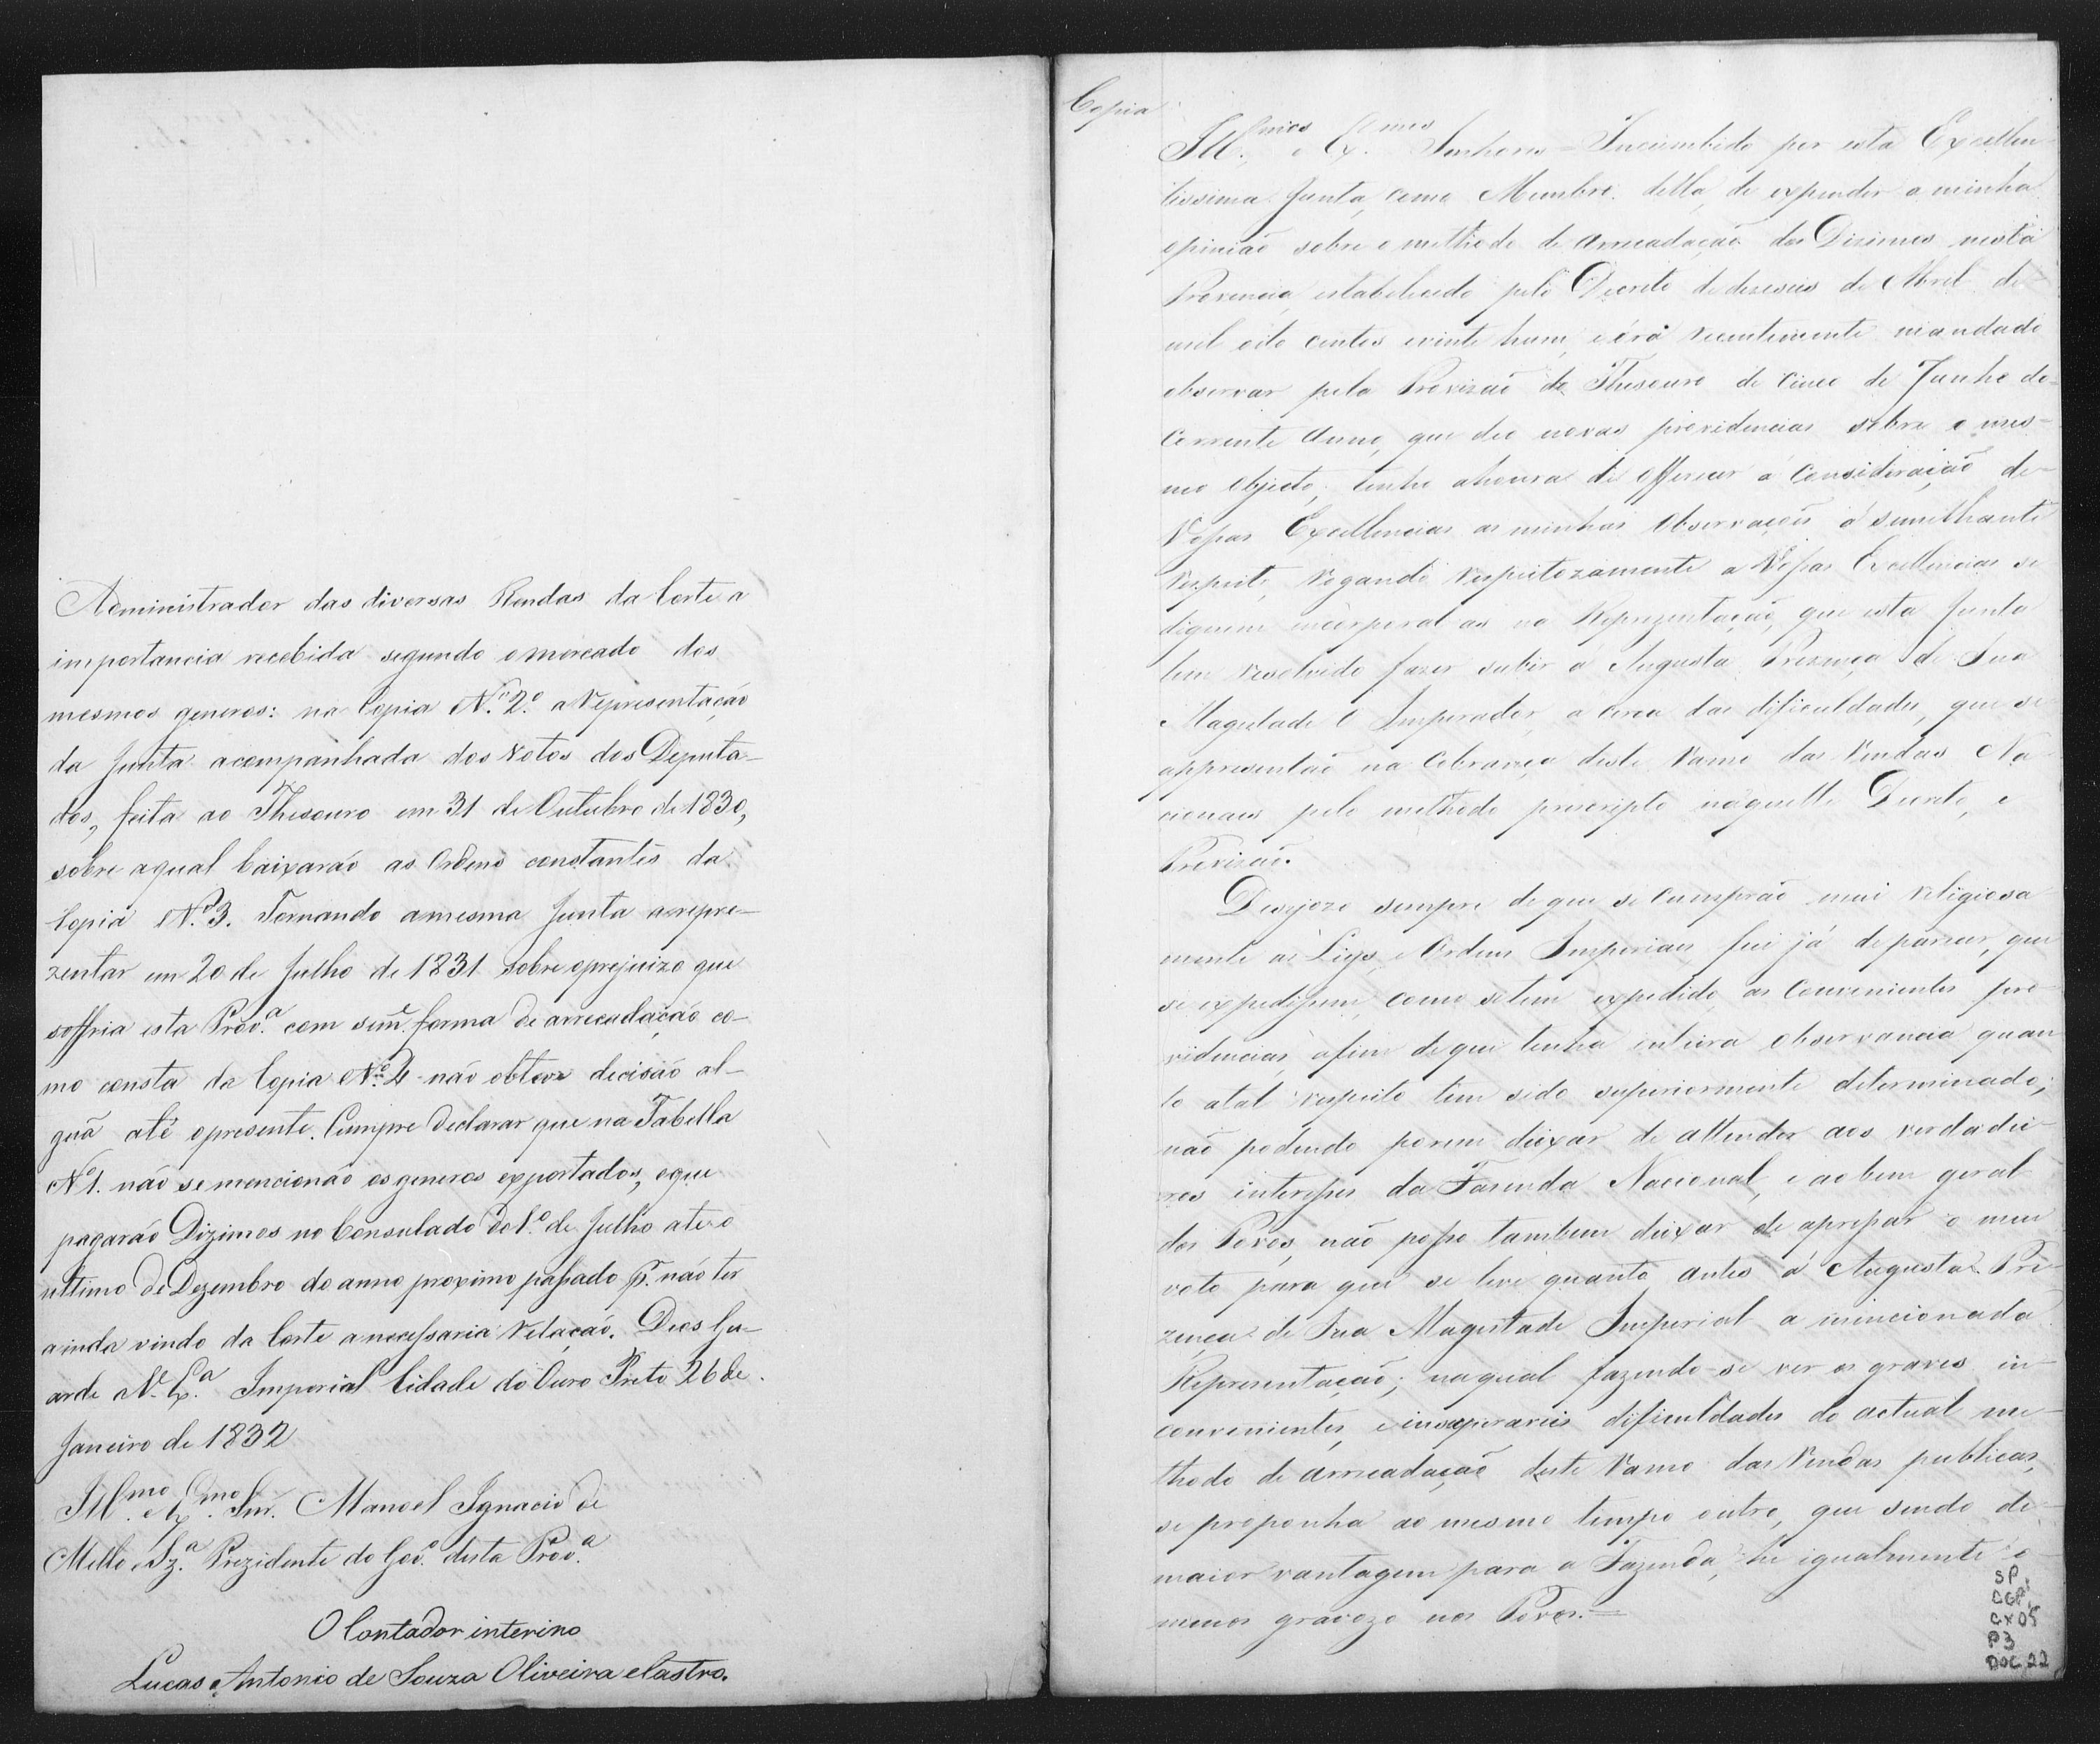 Administrador das diversas Rendas da Corte a
importancia recebida segundo o mercado dos
mesmos generos: na Copia N.º 2.º a Representação
da Junta acompanhada dos Votos dos Deputa-
dos, feita ao Thesouro em 31 de Outubro de 1830,
sobre aqual baixarão as Ordens constantes da
Copia N.º 3. Tornando amesma Junta arepre-
zentar em 20 de Julho de 1831 sobre oprejuizo que
soffria esta Prov.ª com sem.e forma de arrecadação co-
mo consta da Copia N.º 4 não obteve decisão al-
guã até opresente. Cumpre declarar que na Tabella
N.º 1. não se mencionão os generos exportados, eque
pagarão Dizimos no Consulado do 1.º de Julho ate o
ultimo de Dezembro do anno proximo passado p.r não ter
ainda vindo da Corte a necessaria Relação. Deos Gu-
arde a V. Ex.ª Imperial Cidade do Ouro Preto 26 de
Janeiro de 1832
Ill.mo e Ex.mo Snr. Manoel Ignacio de
Mello e Sz.ª Prezidente do Gov.º desta Prov.ª
O Contador interino
Lucas Antonio de Souza Oliveira e Castro.
Copia
Ill.mos e Ex.mos Senhores = Incumbido por esta Excellen
tissima Junta, como Membro della, de expender a minha
opinião sobre o methodo de arrecadação dos Dizimos nesta
Provincia estabelecido pelo Decreto de deseseis de Abril de
mil oito centos evinte hum, e óra recentemente mandado
observar pela Provizão do Thesouro de cinco de Junho do
Corrente Anno, que deo novas providencias sobre o mes-
mo objecto, tenho ahonra de offerecer á Consideração de
Vossas Excellencias as minhas Observações á similhante
respeito, rogando respeitozamente a Vossas Excellencias se
dignem incorporal as na Reprezentação, que esta Junta
tem resolvido fazer subir á Augusta Prezença de Sua
Magestade O Imperador, a cerca das dificuldades, que se
appresentão na Cobrança deste ramo das rendas Na
cionaes pelo methodo prescripto n'aquelle Decreto, e
Provizão.
Desejozo sempre de que se cumprão mui religiosa
mente as Leys, e Ordens Imperiaes fui já de parecer, que
se expedissem, como setem expedido, as Convenientes pro
videncias, afim deque tenha inteira observancia quan
to atal respeito tem sido superiormente determinado;
não podendo porem deixar de attender aos verdadei
ros interesses da Fazenda Nacional, e ao bem geral
dos Povos, não posso tambem deixar de apressar o meu
voto para que se leve quanto antes á Augusta Pre
zença de Sua Magestade Imperial a mencionada
Representação; naqual fazendo-se ver os graves in-
convenientes, e insuperaveis dificuldades do actual me-
thodo de arrecadação deste ramo das rendas publicas,
se proponha ao mesmo tempo outro, que sendo de
maior vantagem para a Fazenda, he igualmente o
menos gravozo aos Povos. =
SP
CGP1
CX 05
P3
DOC. 22